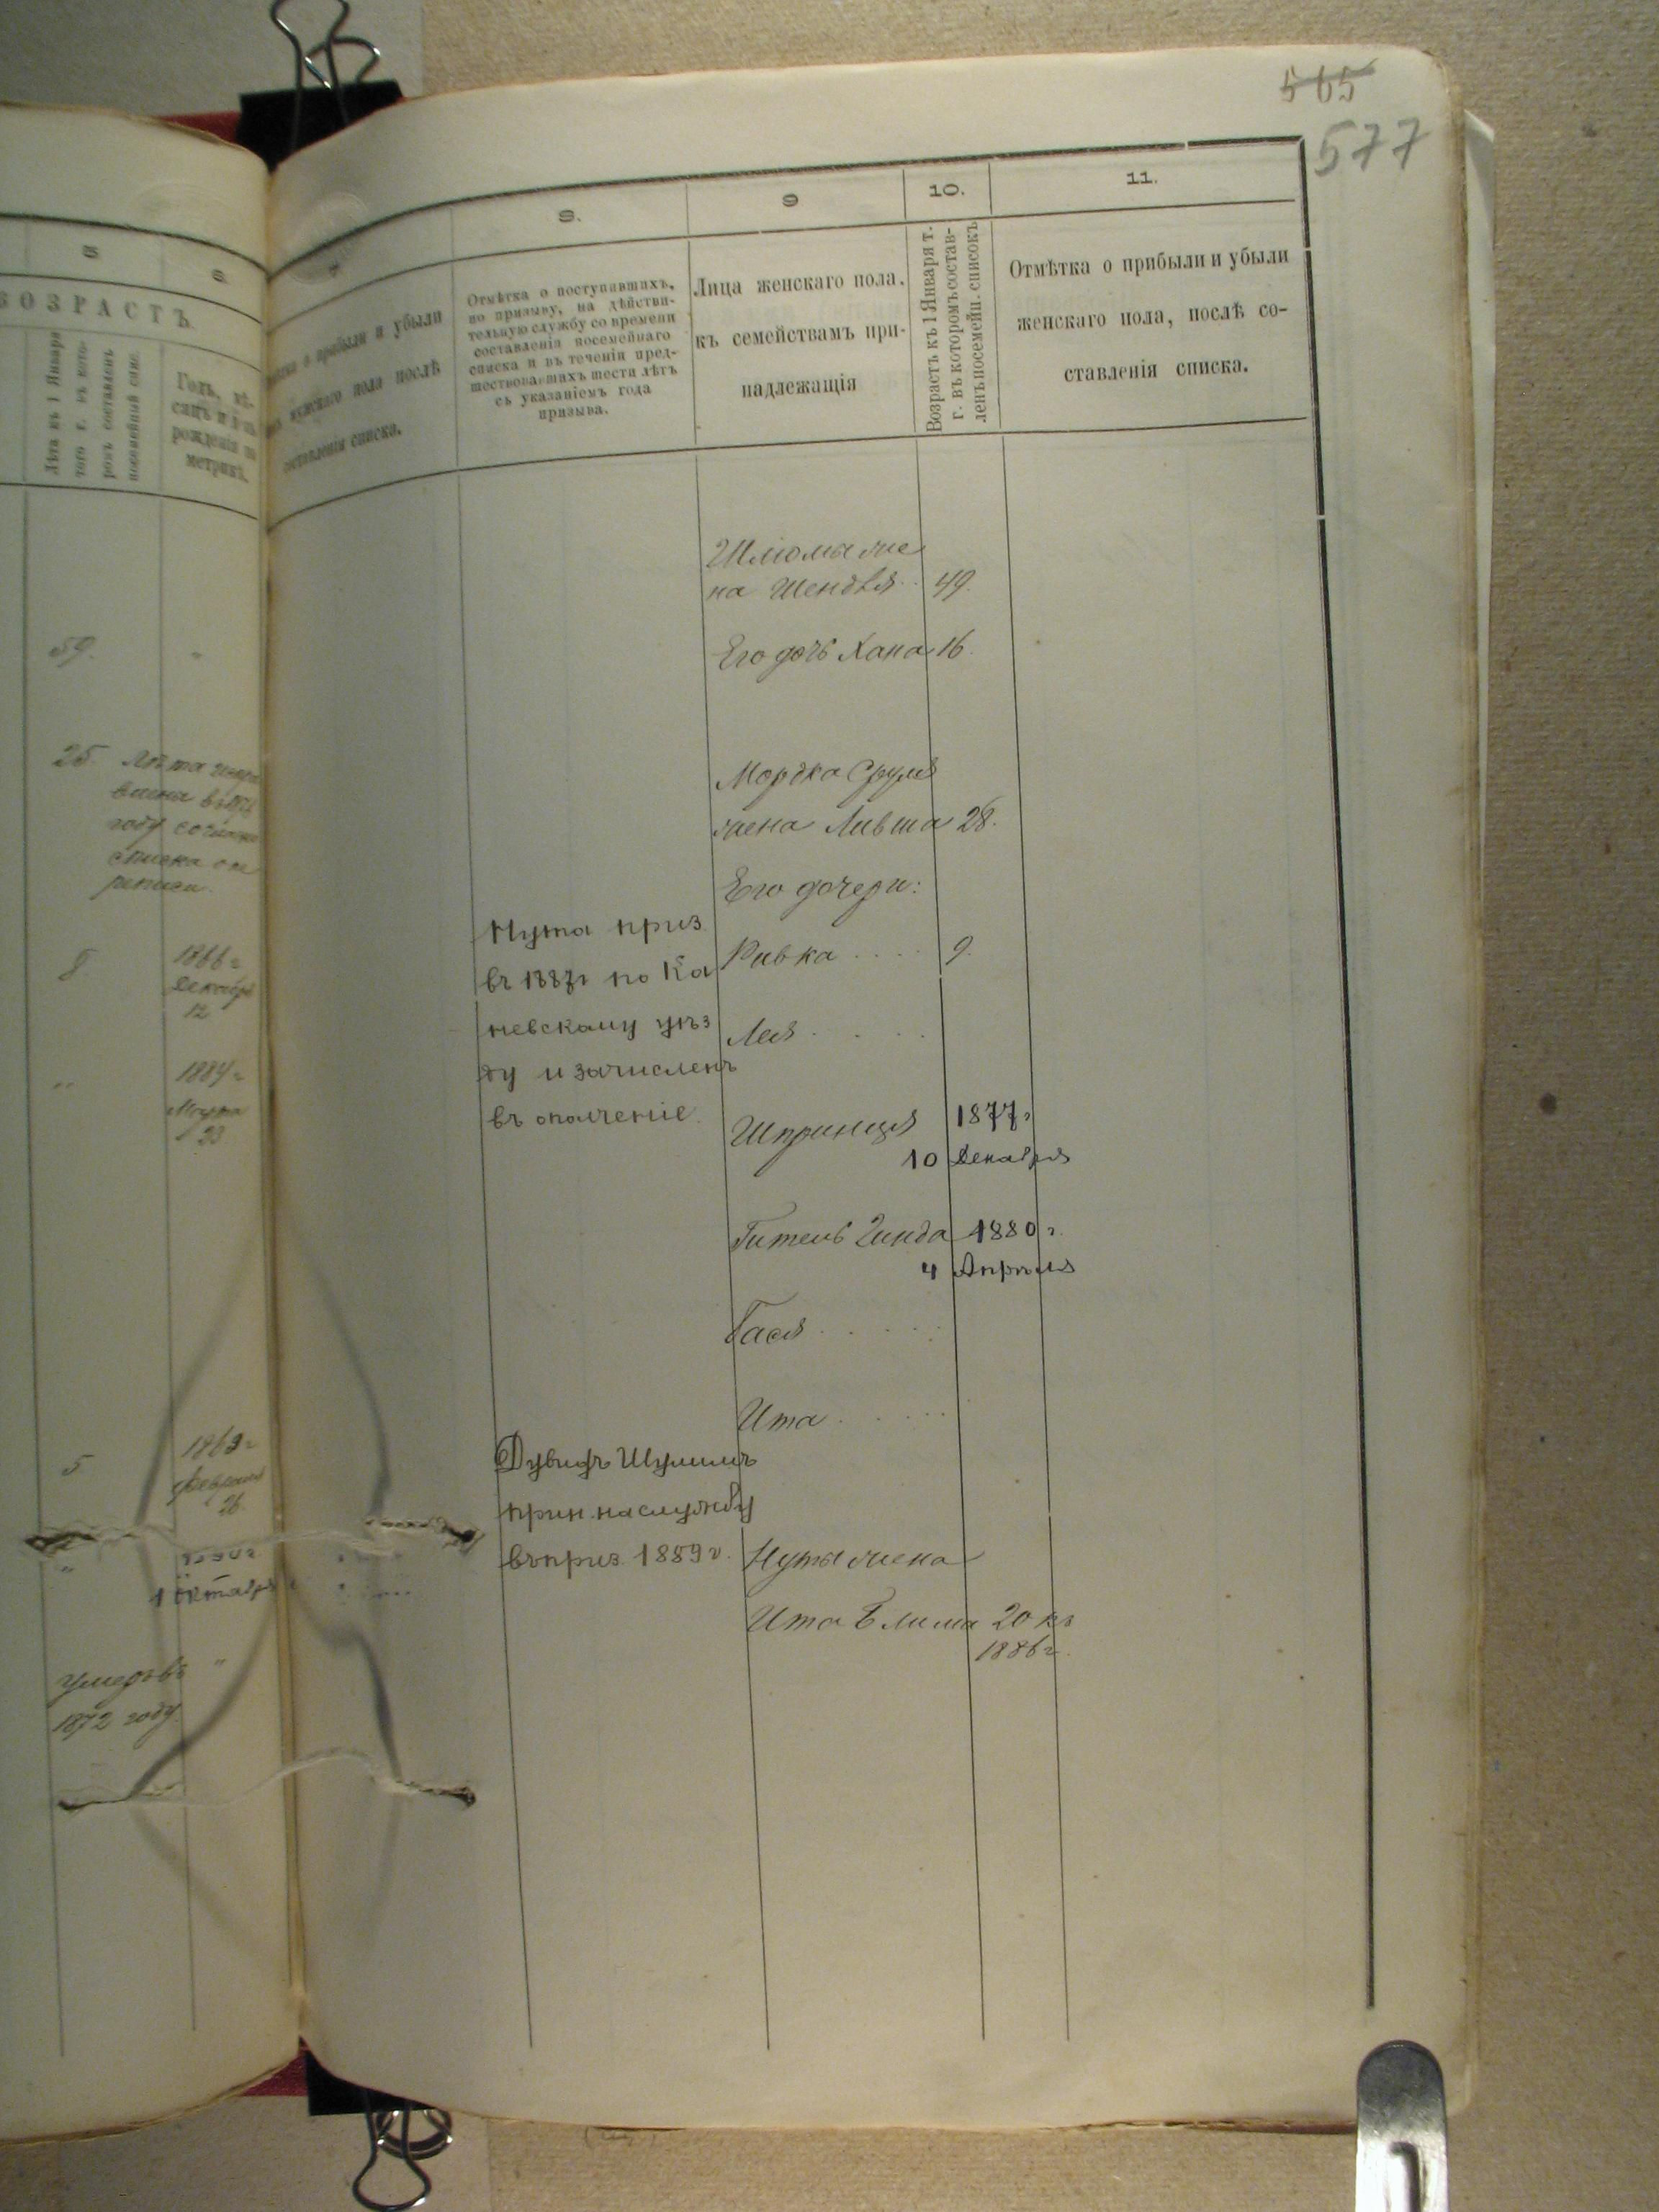 565
577
5
6
8.
9
10.
11.
ВОЗРАСТЪ.
Лѣта къ 1 Января
того г. въ кото-
ромъ составленъ
посемейный спис.
Годъ, мѣ-
сяцъ и день
рожденія по
метрикѣ.
о прибыли и убыли
мужскаго пола послѣ
составленія списка.
Отмѣтка о поступившихъ,
по призыву, на дѣйстви-
тельную службу со времени
составленія посемейнаго
списка и въ теченіи пред-
шествовавшихъ шести лѣтъ
съ указаніемъ года
призыва.
Лица женскаго пола,
къ семействамъ при-
надлежащія
Возрастъ къ 1 Января т.
г. въ которомъ состав-
ленъ посемейн. списокъ
Отмѣтка о прибыли и убыли
женскаго пола, послѣ со-
ставленія списка.
59.
25 Лѣта
году
списка
8
1866 г
Декабря
12
1884 г
Марта
23
5
1869 г
Февраля
26.
1 Октября
умеръ въ
1872 году.
Нута приз.
въ 1887 г по Ка
невскому уѣз
ду и зачисленъ
въ ополченіе.
Дувидъ Шулимъ
прин. на службу
въ приз. 1889 г.
Шліомы же
на Шендля 49.
Его дочь Хана 16.
Мордка Сруля
жена Ливша 28.
Его дочери:
Ривка 9.
Лея
Шпринця 1877 г
10 Декабря
Гитель Зинда 1880 г.
4 Апрѣля
Гася
Ита
Нуты жена
Ита Блима 20 къ
1886 г.